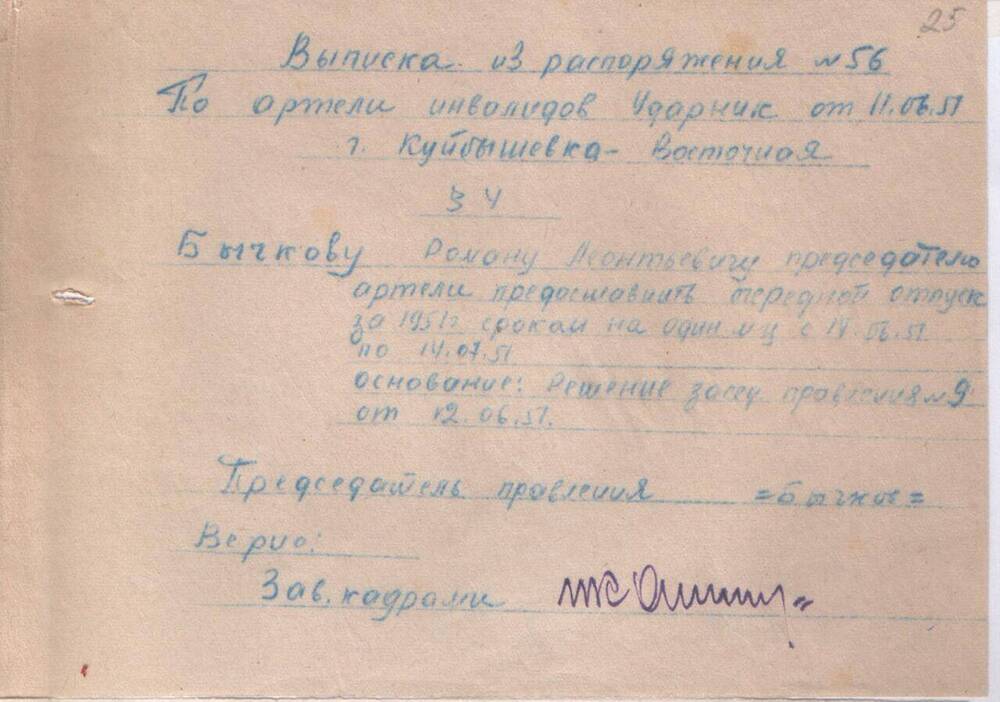 25
Выписка из распоряжения №56
По артели инвалидов Ударник от 11.06.51
г. Куйбышевка-Восточная
§ 4
Бычкову Роману Леонтьевичу председателю
артели предоставить очередной отпуск
за 1951г. сроком на один м-ц с 14.06.51
по 14.07.51
основание: Решение засед правления №9
от 12.06.51.
Председатель правления =Бычков=
Верно:
Зав. кадрами